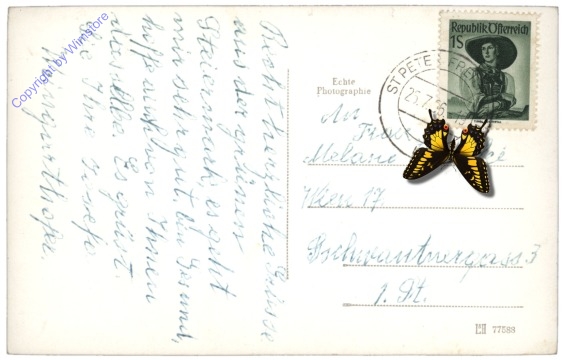 Copyright by Wimstore
Recht herzliche Grüsse
aus der grünen
Steiermark, es geht
mir sehr gut. Bin Gesund,
hoffe auch von Ihnen
dasselbe. Es grüsst
Sie Ihre
Echte
Photographie
Republik Österreich
1S
ST. PETER
An
Frau
Melanie
Wien 17.
3
1. St.
77588